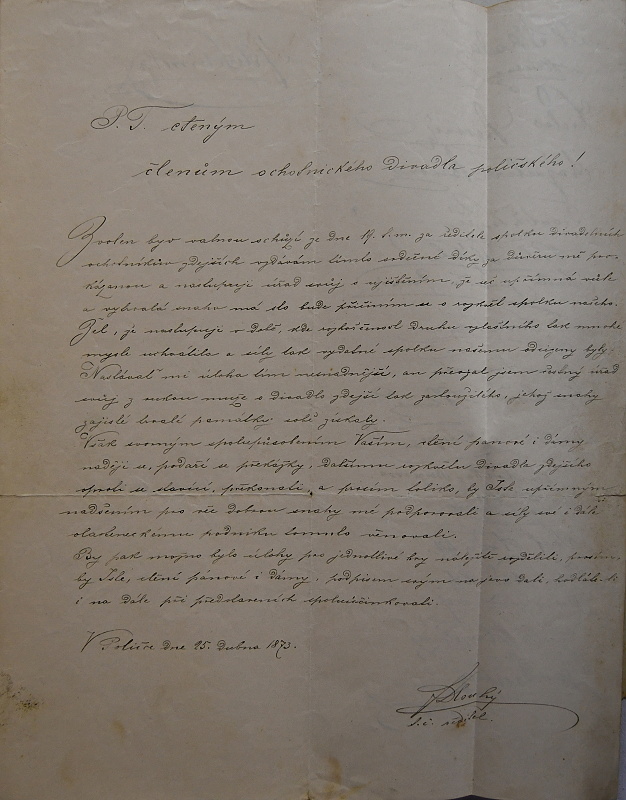 P. T. cteným
členům ochotnického divadla poličského!
Zvolen byv valnou schůzí ze dne t. m. za ředitele spolku divadelních
ochotníkův zdejších vzdávám tímto srdečné díky za důvěru mě pro-
kázanou a nastupuje úřad svůj s ujištěním, že už upřímná vůle
a vytrvalá snaha má do bude přičiním se o rozkvět spolku našeho.
Žel, že nastupuje v době, kde druhu zvláštního tak mnohé
mysle uchvátila a síly tak vydatné spolku našemu odcizeny byly.
Nastávať mi úloha tím nesnadnější, an převzal jsem čestný úřad
svůj z rukou muže o divadlo zdejší tak zasloužilého, jehož snahy
zajisté trvalé památky sobě získaly.
Však svorným spolupůsobením Vaším, ctění pánové i dámy
naději se, podaří se překážky, dalšímu rozkvětu divadla zdejšího
oproti se stavící, překonati, a prosím toliko, by Jste upřímným
nadšením pro věc dobrou snahy mé podporovali a síly své i dále
vlasteneckému podniku tomuto věnovali.
By pak možno bylo úlohy pro jednotlivé hry náležitě rozděliti, prosím
by Jste, ctění pánové i dámy, podpisem svým na jevo dali, hodláte-li
i na dále při představeních spoluúčinkovati.
V Poličce dne 25. dubna 1873.
Dlouhý
t. č. ředitel.